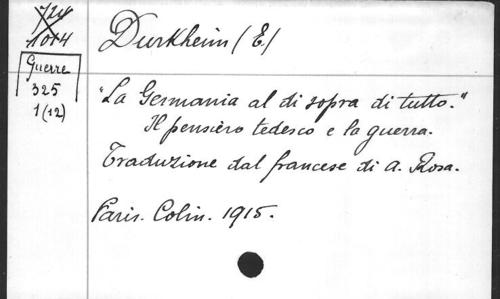 724
1014
Guerre
325
1(12)
Durkheim (E)
"La Germania al di sopra di tutto."
Il pensiero tedesco e la guerra.
Traduzione dal francese di A. Rosa.
Paris. Colin. 1915.